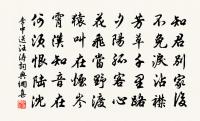 知君別家後
不免淚沾襟
芳草千里路
夕陽孤客心
花飛當野渡
猿叫在煙岑
霄漢知音在
何須恨陸沈
李中送汪濤